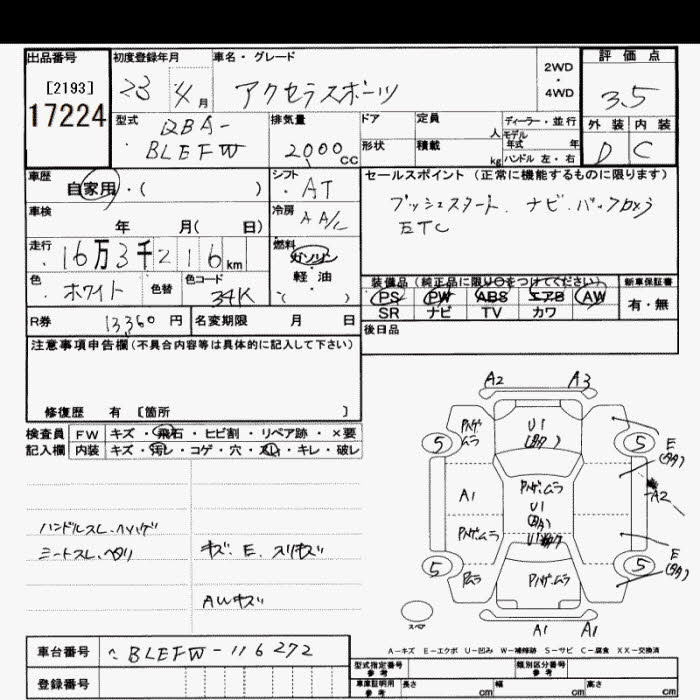 出品番号
[2193]
17224
初度登録年月 23 4月
車名・グレード アクセラスポーツ
2WD
・
4WD
評価点
3.5
外装 内装
D C
型式 DBA-
BLEFW
排気量
2000cc
ドア
形状
定員 人
積載 kg
ディーラー・並行
モデル
年式 年
ハンドル 左・右
車歴
自家用・( )
シフト
AT
冷房
AA/C
セールスポイント(正常に機能するものに限ります)
プッシュスタート.ナビ.バックカメラ
ETC
車検
年 月( 日)
走行
16万3千216km
燃料
ガソリン
軽・油
( )
色
ホワイト
色替
色コード
34K
装備品(純正品に限り○をつけてください)
PS PW ABS エアB AW
SR ナビ TV カワ
新車保証書
有・無
R券 13360円
名変期限 月 日
後日品
注意事項申告欄(不具合内容等は具体的に記入して下さい)
修復歴 有 [箇所 ]
検査員
記入欄
FW キズ・飛石・ヒビ割・リペア跡・×要
内装 キズ・汚レ・コゲ・穴・スレ・キレ・破レ
キズ.E.スリキズ
AWキズ
A2 A3
U1
5 5
E
A1
A2
U1
U1
E
5 5
スペア
A1 A1
A-キズ E-エクボ U-凹み W-補修跡 S-サビ C-腐食 XX-交換済
車台番号 BLEFW-116272
登録番号
型式指定番号
参考
類別区分番号
参考
車庫証明用
参考
長さ cm
幅 cm
高さ cm